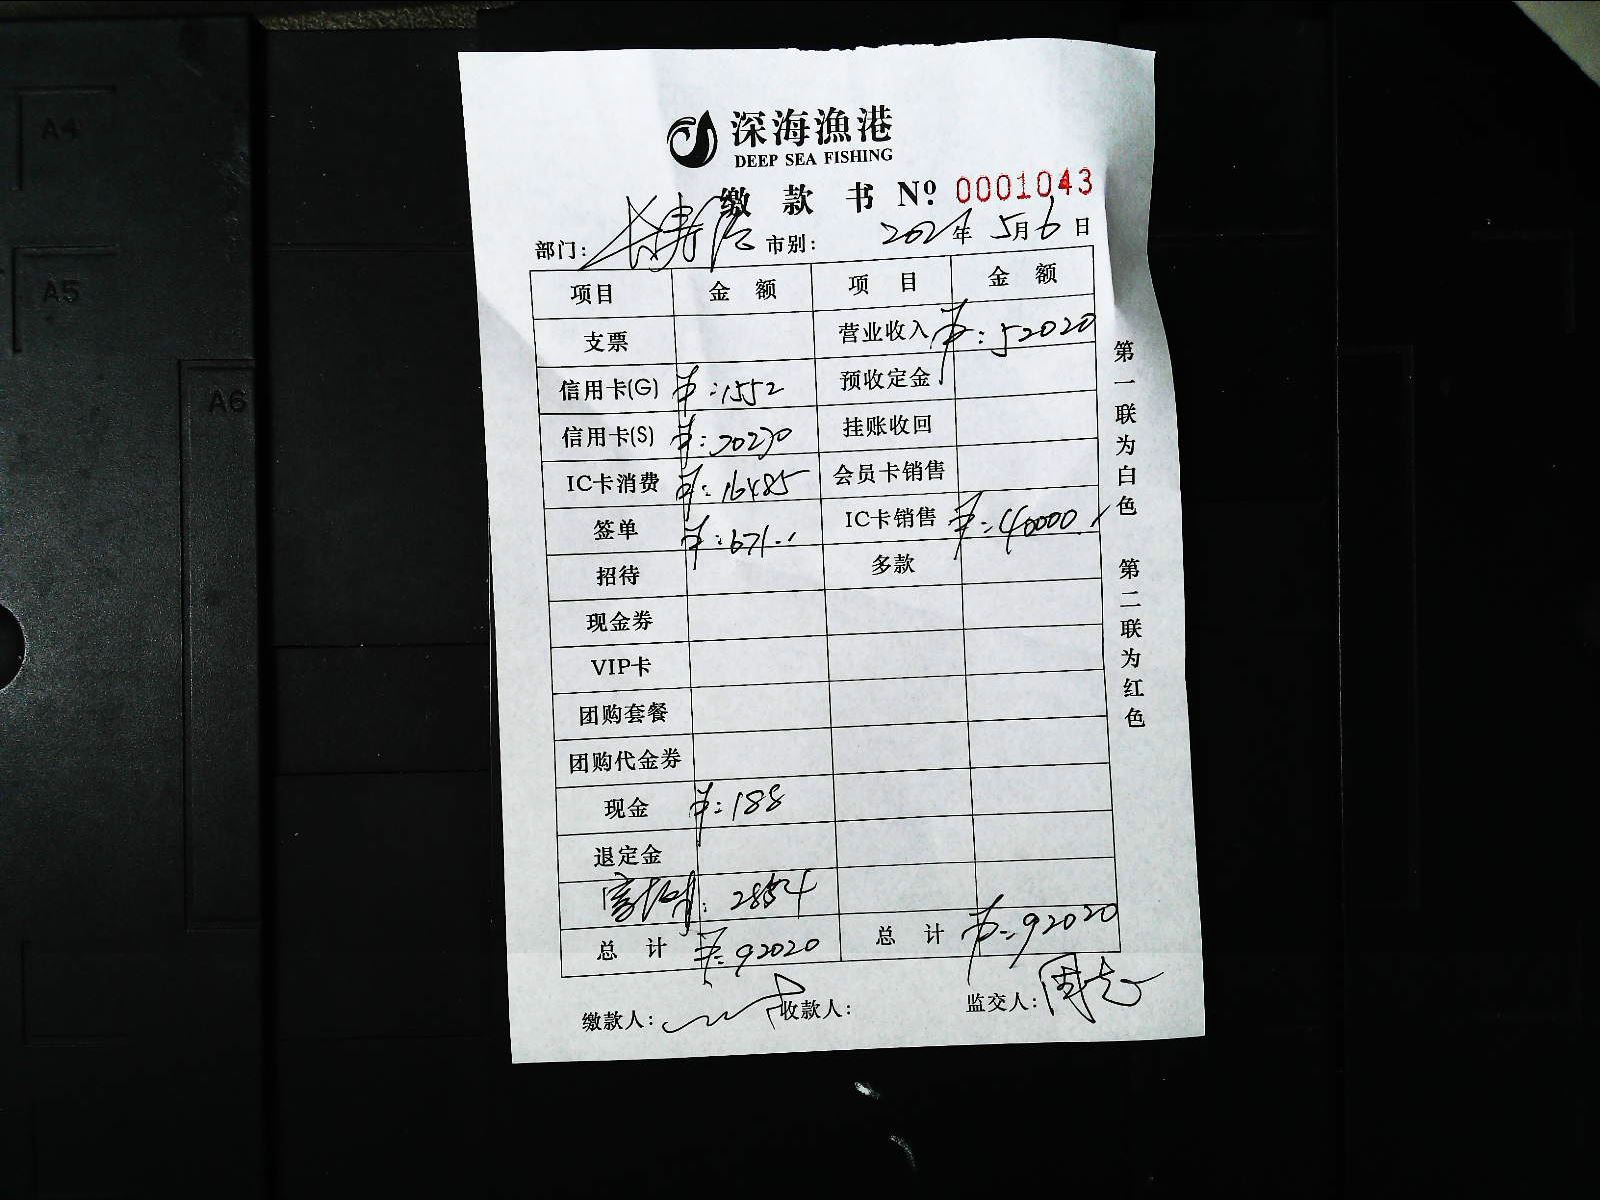 A4
A5
A6
深海漁港
DEEP SEA FISHING
缴款书 Nº: 0001043
部门: 长寿店 市别: 2021年 5月6日
项目 金额 项目 金额
支票 营业收入 ¥:52020
信用卡(G) ¥:1552 预收定金
信用卡(S) ¥:70270 挂账收回
IC卡消费 ¥:16485 会员卡销售
签单 ¥:671.. IC卡销售 ¥:40000.
招待 多款
现金券
VIP卡
团购套餐
团购代金券
现金 ¥:188
退定金
: 2854
总计 ¥:92020 总计 ¥:92020
缴款人: 收款人: 监交人:
第一联为白色 第二联为红色